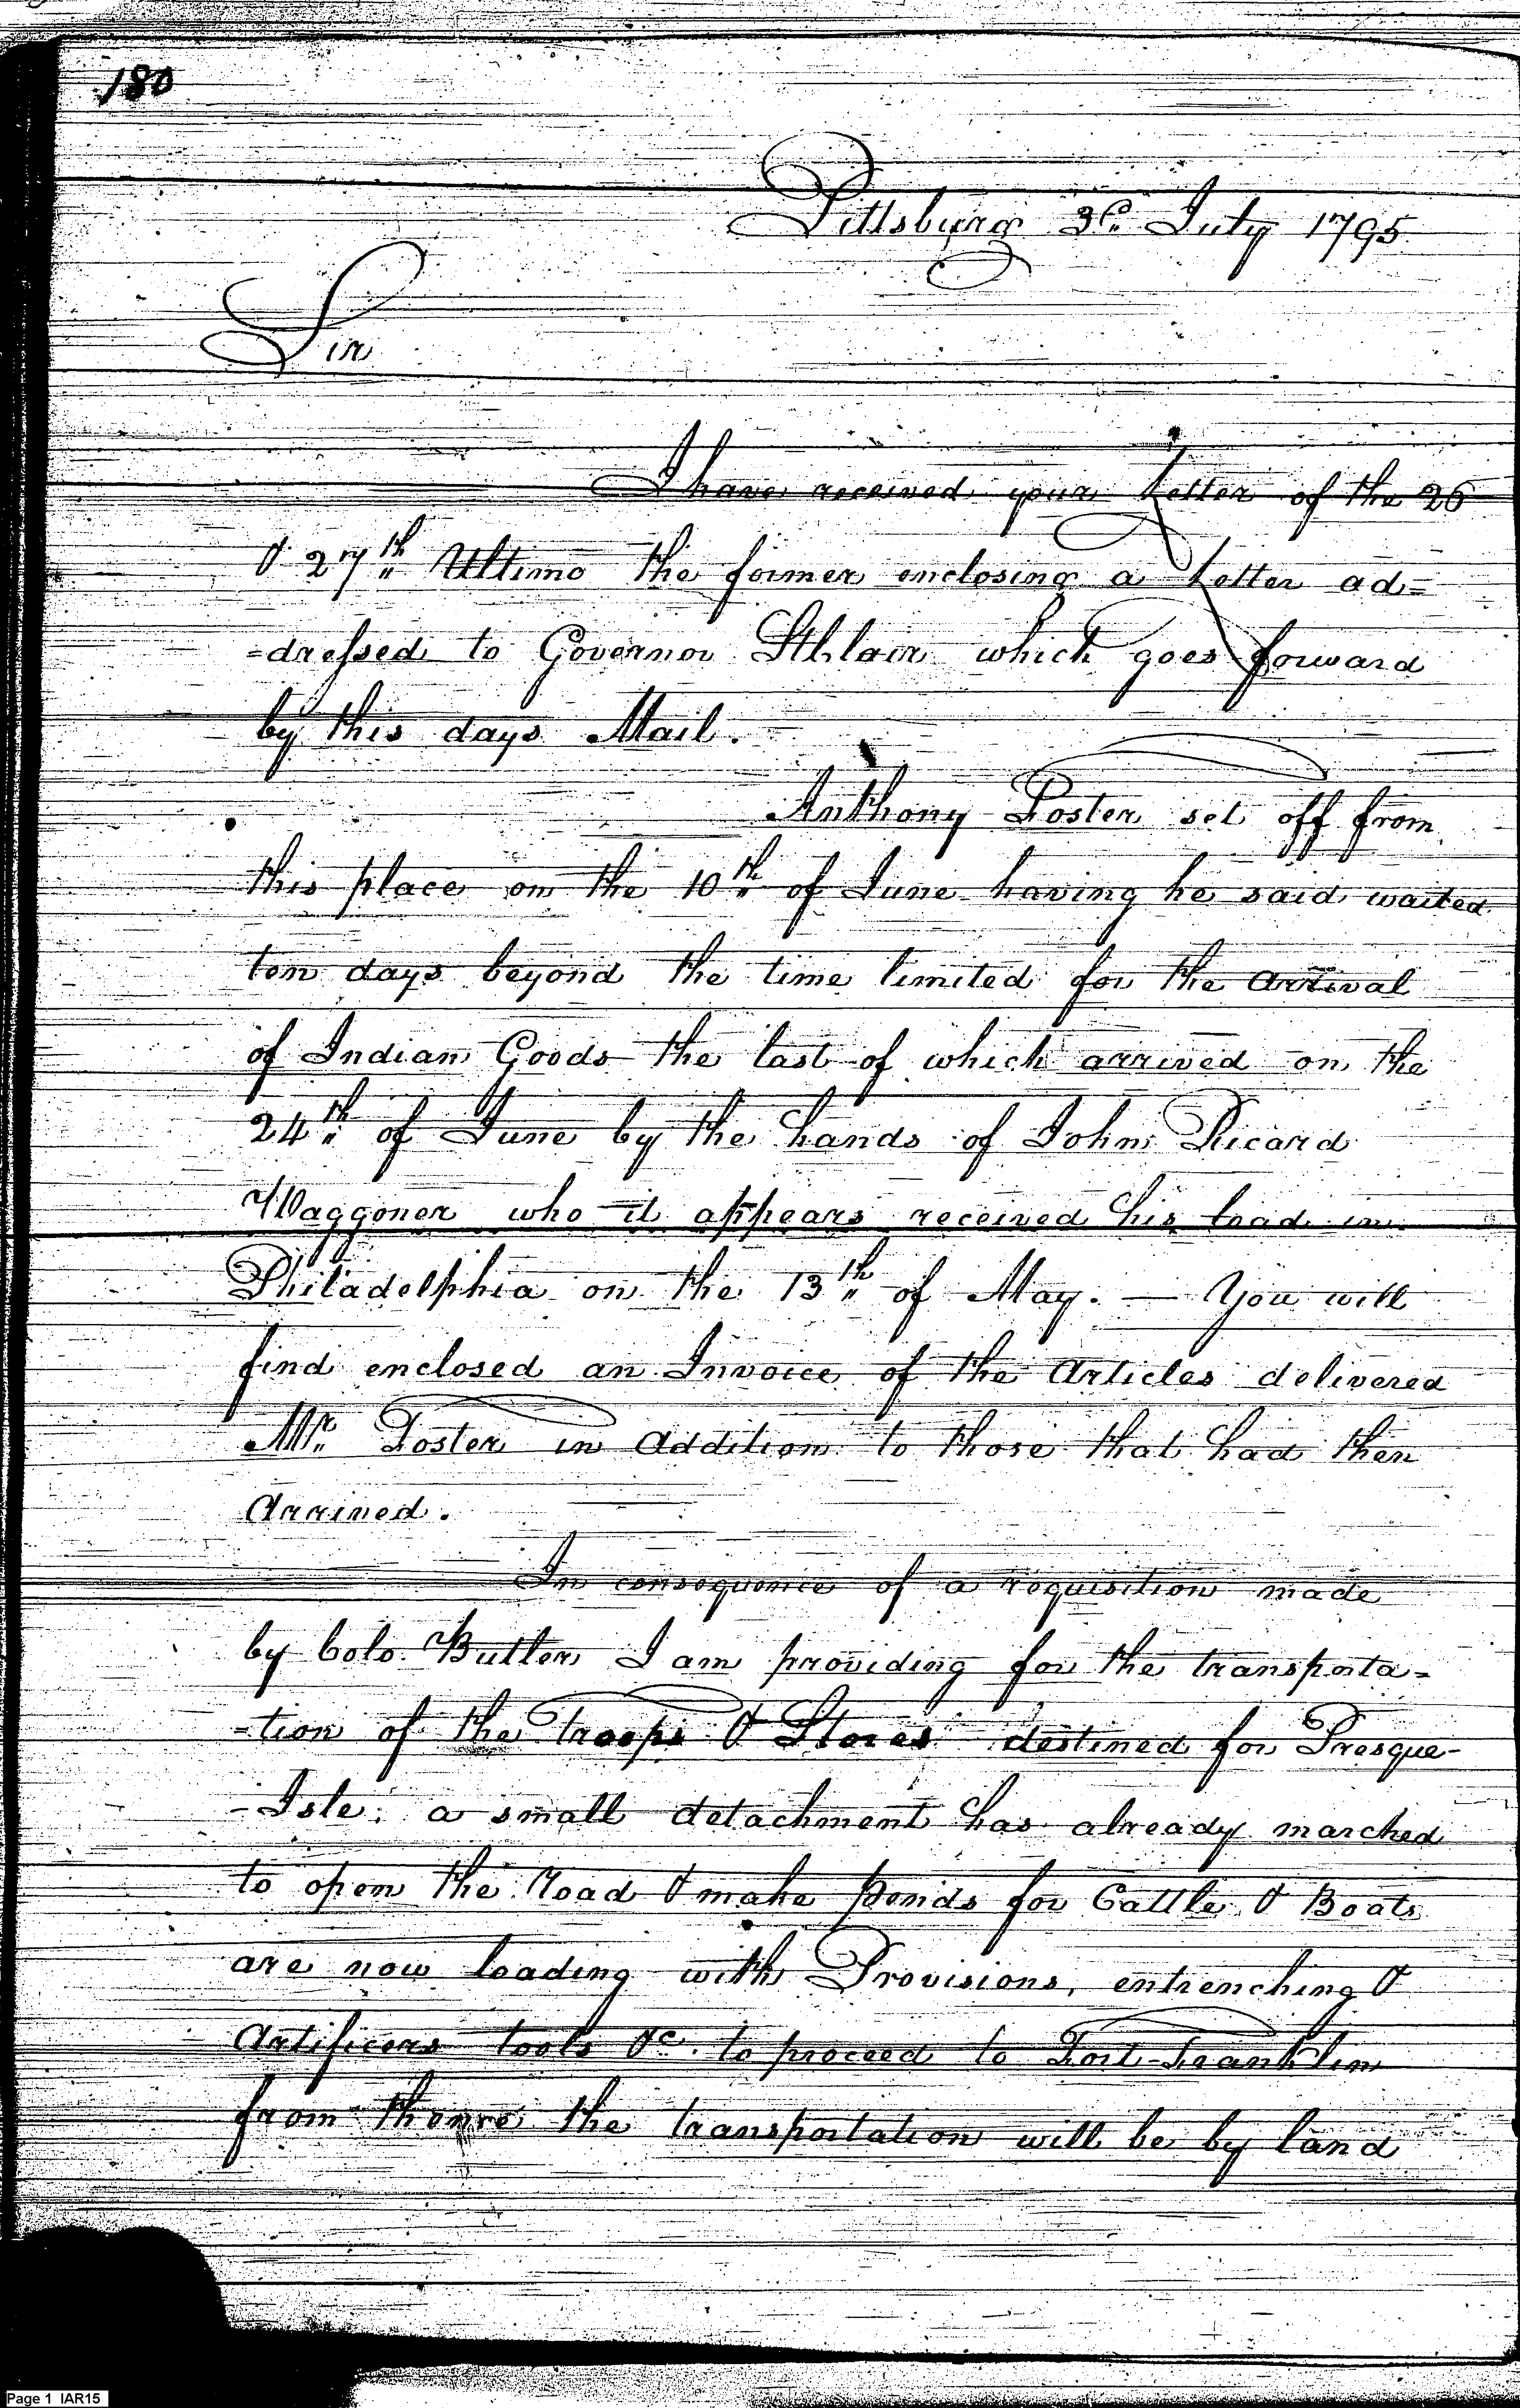 180
Pittsburg 3d July 1795
Sir
I have received your Letter of the 26
& 27th Ultimo the former enclosing a Letter ad=
=dressed to Governor StClair which goes forward
by this days Mail.
Anthony Foster set off from
this place on the 10th of June having he said waited
ten days beyond the time limited for the Arrival
of Indian Goods the last of which arrived on the
24th of June by the hands of John Ricard
Waggoner who it appears received his load in
Philadelphia on the 13th of May. — You will
find enclosed an Invoice of the Articles delivered
Mr. Foster in Addition to those that had then
Arrived.
In consequence of a requisition made
by Colo. Butler I am providing for the transporta=
=tion of the Troops & Stores destined for Presque-
-Isle; a small detachment has already marched
to open the Road & make Ponds for Cattle & Boats
are now loading with Provisions, entrenching &
Artificers tools &c. to proceed to Fort-Franklin
from thence the transportation will be by land
Page 1 IAR15